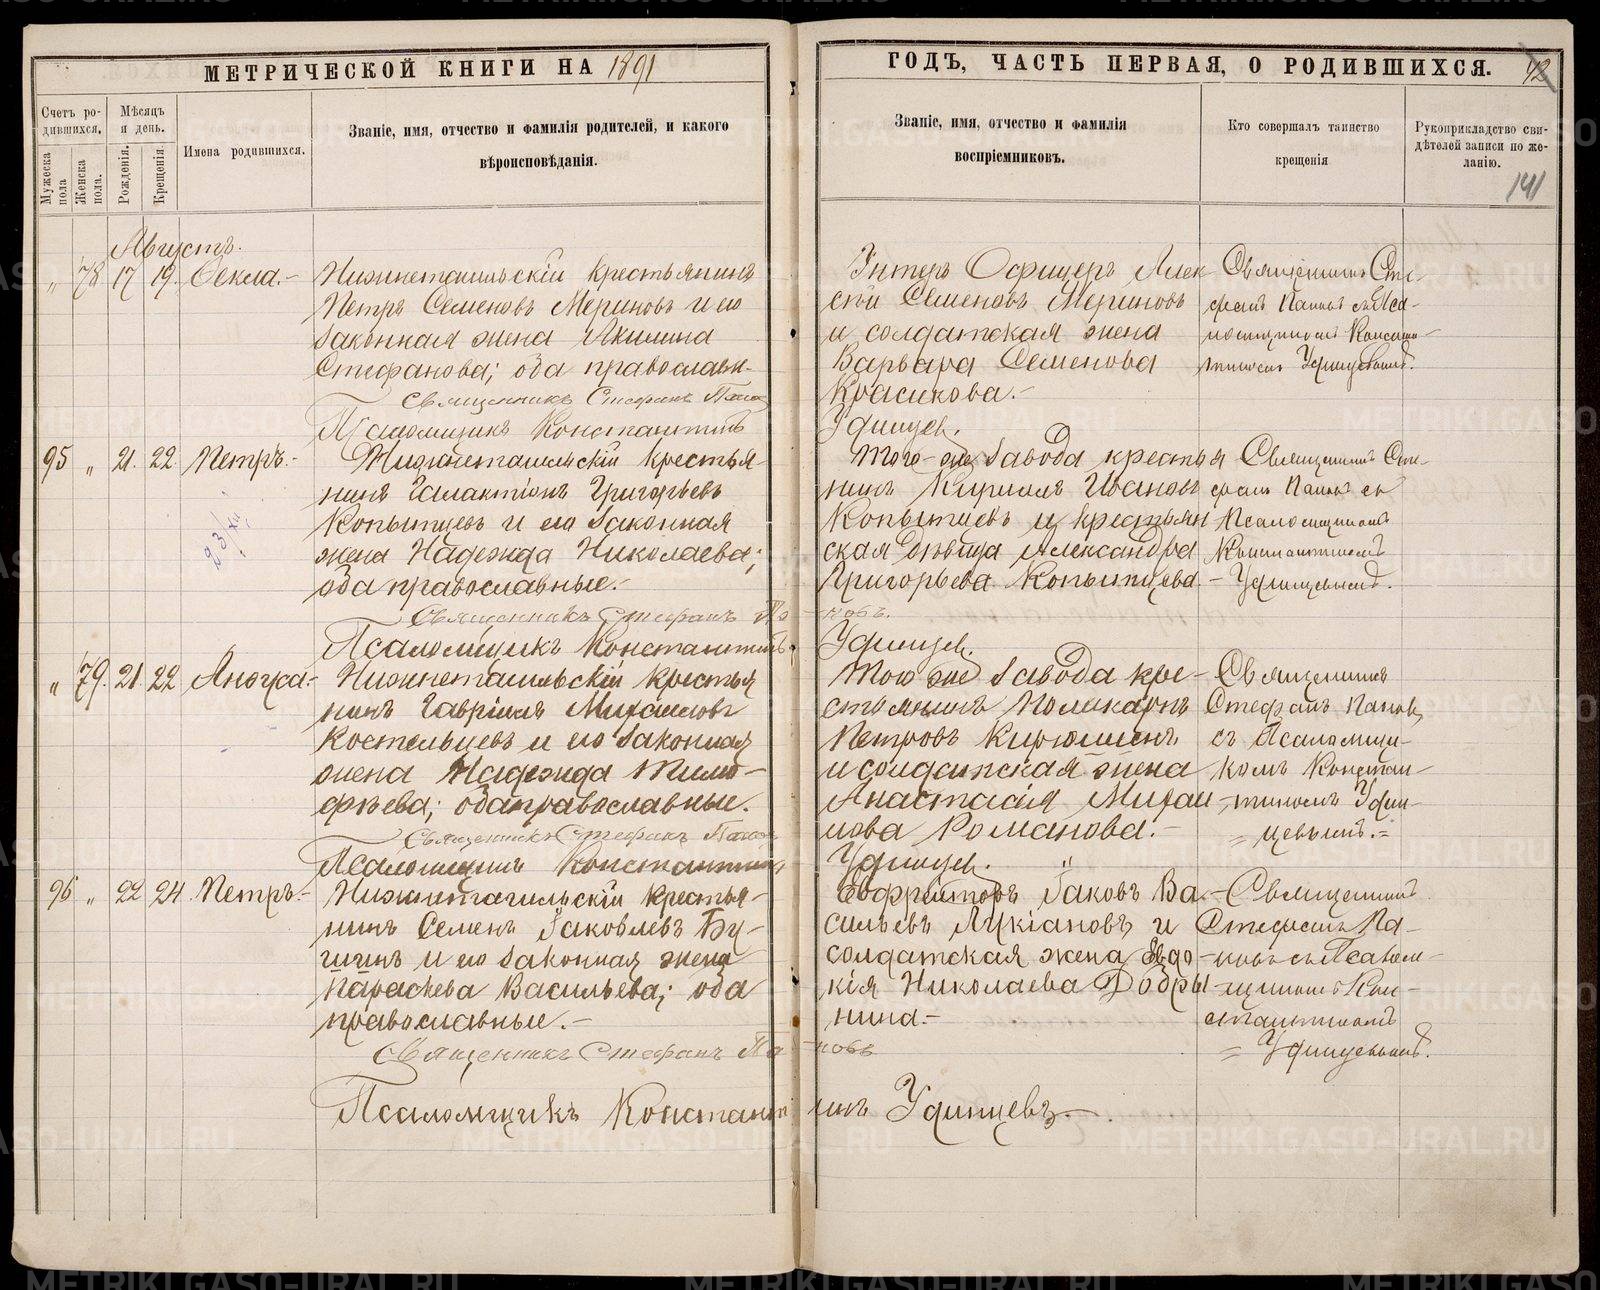 МЕТРИЧЕСКОЙ КНИГИ НА 1891
Счетъ родившихся.
Мужеска пола
Женска пола.
Мѣсяцъ и день.
Рожденія.
Крещенія.
Имена родившихся.
Званіе, имя, отчество и фамилія родителей, и какого
вѣроисповѣданія.
Августъ.
„ 78 17 19. Ѳекла.-
Нижнетагильскій крестьянинъ
Петръ Семеновъ Мериновъ и его
законная жена Акилина
Стефанова; оба православн.
Священникъ Стефанъ Пано
Псаломщикъ Константинъ
95 „ 21. 22. Петръ.-
Нижнетагильскій крестья-
нинъ Галактіонъ Григорьевъ
Копытцевъ и его законная
жена Надежда Николаева;
оба православные.-
Священникъ Стефанъ Па
Псаломщикъ Константинъ
„ 79. 21. 22
Нижнетагильскій крестья
нинъ Гавріилъ Михаиловъ
Костельцевъ и его законная
жена Надежда Тимо-
фѣева; оба православные.
Священникъ Стефанъ Пано
Псаломщикъ Константинъ
96 „ 22 24. Петръ.-
Нижнетагильскій крестья-
нинъ Семенъ Іаковлевъ Бу-
шинъ и его законная жена
Параскева Васильева; оба
православные.-
Священникъ Стефанъ Па
Псаломщикъ Констант
ГОДЪ, ЧАСТЬ ПЕРВАЯ, О РОДИВШИХСЯ. 42
Званіе, имя, отчество и фамилія
воспріемниковъ.
Кто совершалъ таинство
крещенія
Рукоприкладство сви-
дѣтелей записи по же-
ланію.
141
Унтеръ Офицеръ Алек-
сѣй Семеновъ Мериновъ
и солдатская жена
Варвара Семенова
Красикова.-
Удинцев.
Священникъ Сте-
фанъ Пановъ съ Пса-
ломщикомъ Констан-
тиномъ Удинцевымъ.
Того-же завода крестья
нинъ Кириллъ Ивановъ
Копытцевъ и крестьян
ская дѣвица Александра
Григорьева Копытцева
новъ.
Удинцев.
Священникъ Сте-
фанъ Пановъ съ
Псаломщикомъ
Константиномъ
- Удинцевымъ.
Того же завода кре-
стьянинъ Поликарпъ
Петровъ Кирюшинъ
и солдатская жена
Анастасія Михаи
лова Романова.-
Удинцев.
Священникъ
Стефанъ Пановъ
съ Псаломщи-
комъ Констан-
тиномъ Удин-
цевымъ.=
Ефрейторъ Іаковъ Ва-
сильевъ Лукіановъ и
солдатская жена Евдо-
кія Николаева Добры
нина.-
новъ
инъ Удинцевъ.
Священникъ
Стефанъ Па-
новъ съ Псалом-
щикомъ Кон-
стантиномъ
= Удинцевымъ.
METRIKI.GASO-URAL.RU